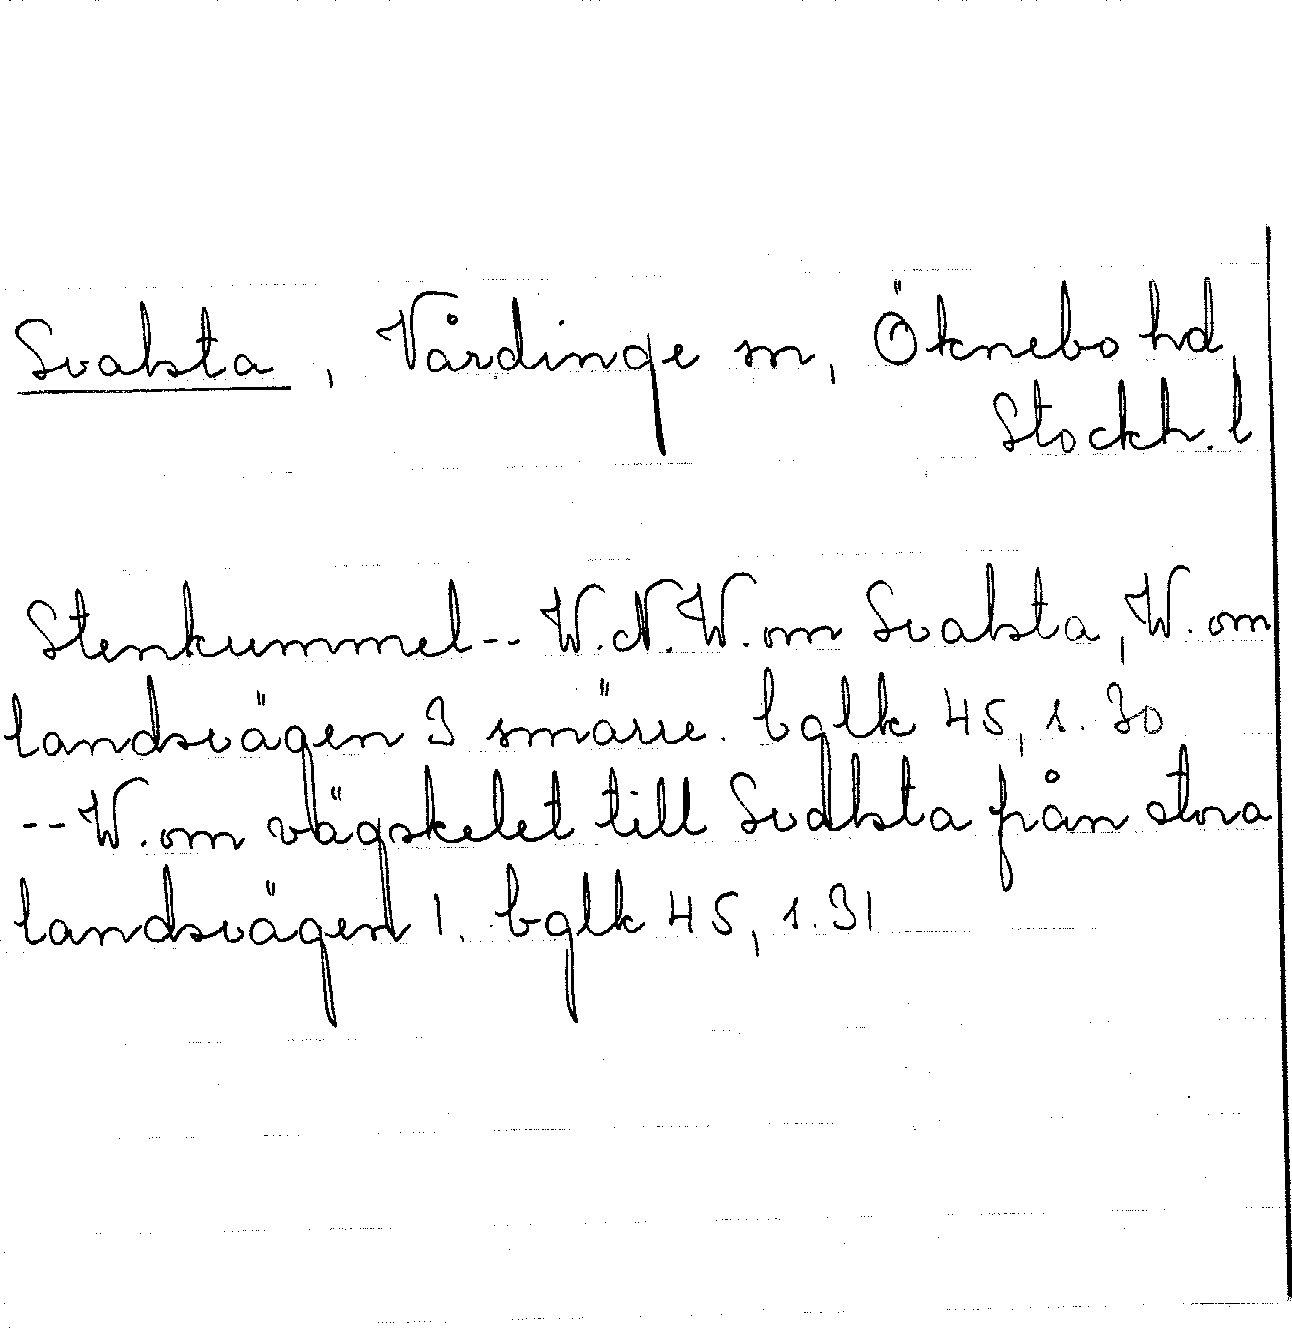 Svalsta, Vårdinge sn, Öknebo hd,
Stockh. l
Stenkummel -- W.N.W. om Svalsta, W. om
landsvägen 3 smärre. bglk 45, s. 30
-- W. om vägskelet till Svalsta från stora
landsvägen 1. bglk 45, s. 31